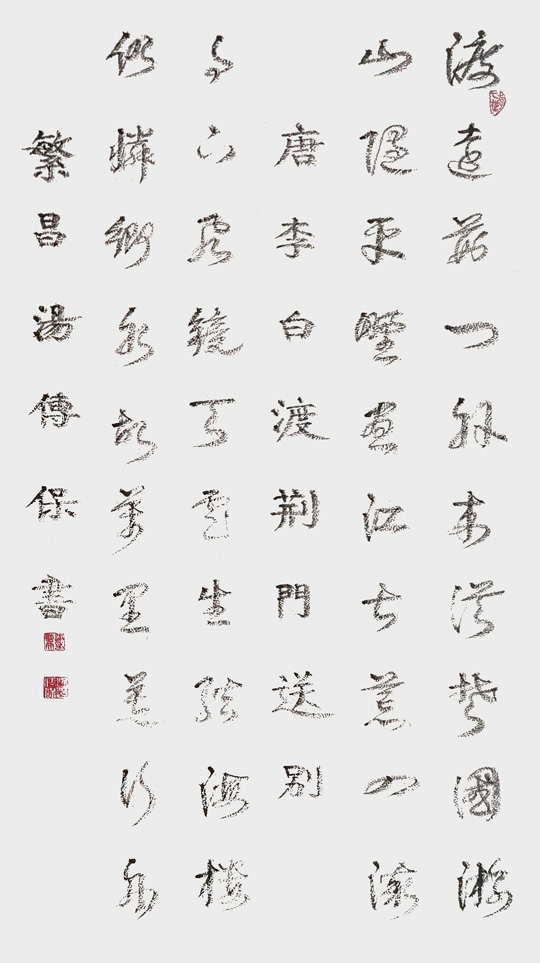 渡遠荊門外來從楚國遊
山隨平野盡江大荒入流
唐李白渡荊門送別
月下飛鏡天雲生結海樓
仍憐鄉水故萬里送行舟
繁昌湯傳保書